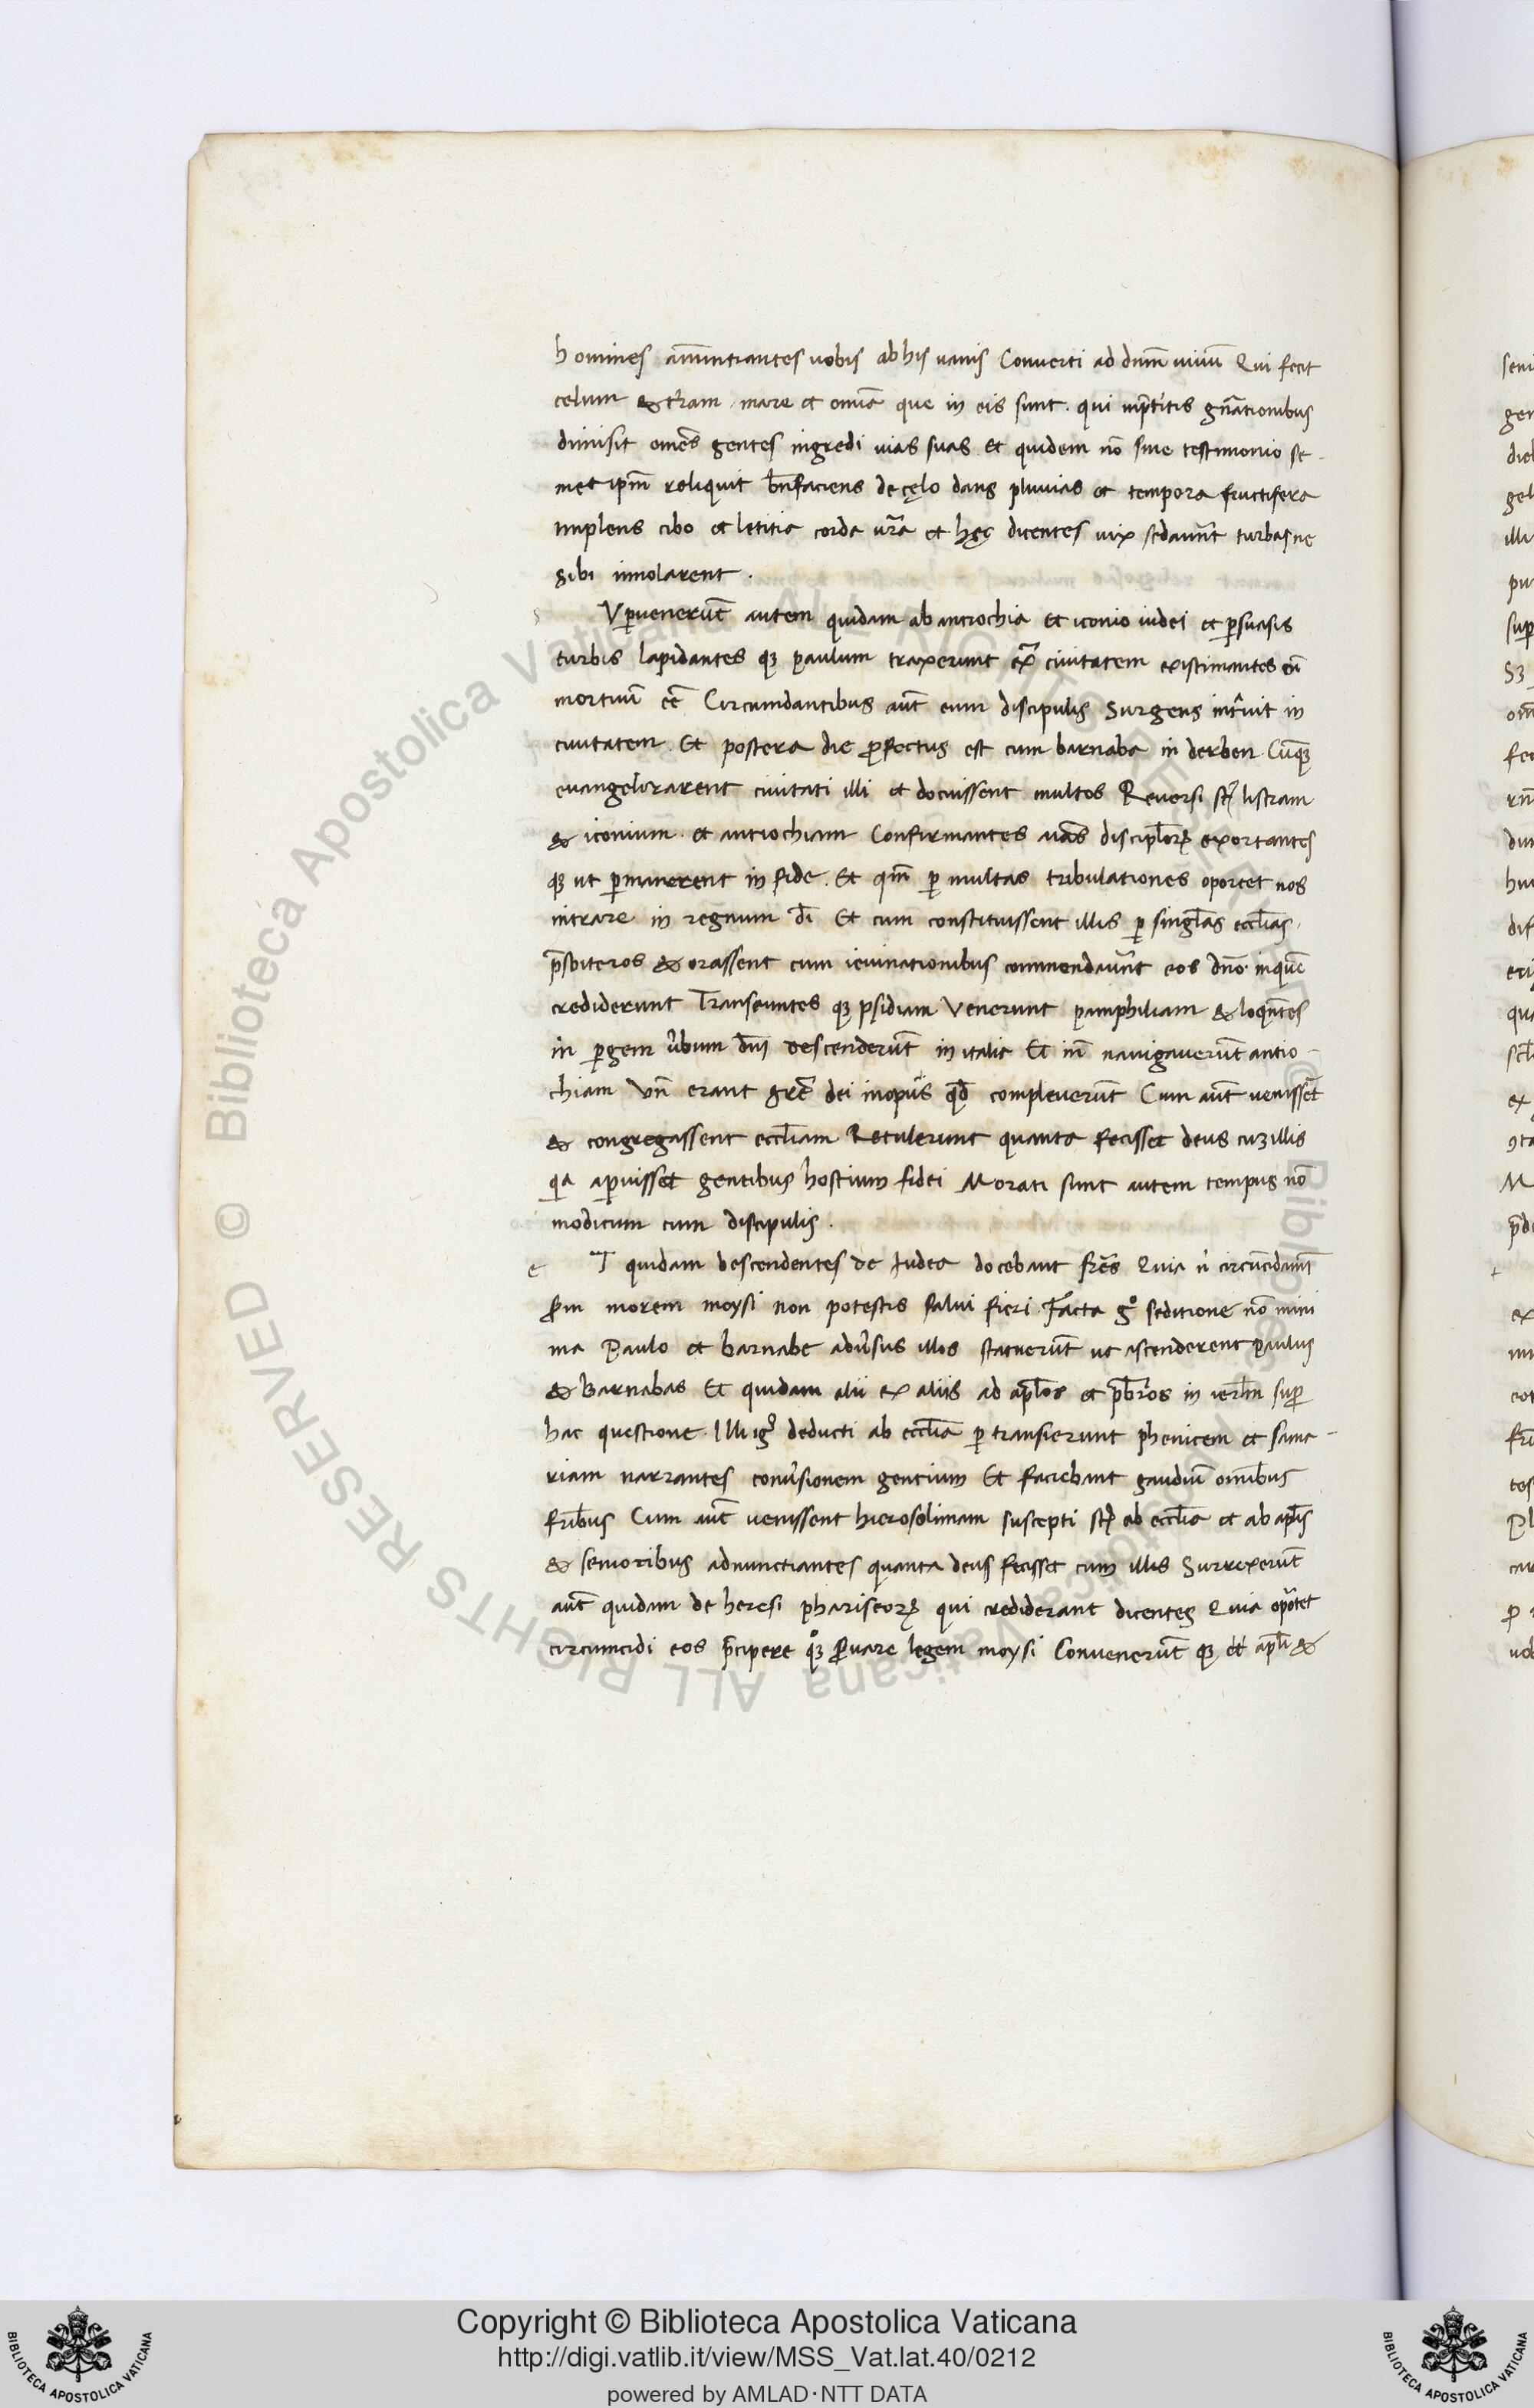 homines anūntiantes uobis ab his uanis Conuerti ad dnm̄ uiuū Qui fecit
celum & tr̄am mare et omīa que in eis sunt. qui in p̄teritis gn̄ationibus
dimisit omēs gentes ingredi uias suas et quidem nō sine testimonio se-
met ipm̄ reliquit bn̄faciens de cęlo dans pluuias et tempora fructifera
implens cibo et letitia corda ur̄a et hęc dicentes uix sedauer̄t turbas ne
sibi imolarent.
s Vꝑuenerūt autem quidam ab antiochia et iconio iudei et ꝑsuasis
turbis lapidantes qꝫ paulum traxerunt ex̄ ciuitatem existimantes eū
mortuū eē Circumdantibus aūt eum discipulis Surgens intr̄uit in
ciuitatem. Et postera die ꝓfectus est cum barnaba in derben. Cūqꝫ
euangelizarent ciuitati illi et docuissent multos Reuersi st̄ listram
& iconium. et antiochiam Confirmantes aīas discipl̄oꝝ exortantes
qꝫ ut ꝑmanerent in fide. Et qm̄ ꝑ multas tribulationes oportet nos
intrare in regnum dī Et cum constituissent illis ꝑ singl̄as eccl̄ias.
p̄sbiteros & orassent cum ieiunationibus commendauer̄t eos dnō in quē
crediderunt Transeuntes qꝫ psidiam Venerunt pamphiliam & loqn̄tes
in ꝑgem ūbum dnī descenderūt in italia Et in̄ nauigauerūt antio-
chiam Vn̄ erant gr̄e dei in opus qd̄ compleuerūt Cum aūt uenissēt
& congregassent eccl̄iam Retulerunt quanta fecisset deus cuꝫ illis
qa aꝑuisset gentibus hostium fidei Morati sunt autem tempus nō
modicum cum discipulis.
e T quidam descendentes de Iudea docebant fr̄es Quia n̄ circūcidamī
ẜm morem moysi non potestis salui fieri. Facta gͦ seditione nō mini
ma Paulo et barnabe adūsus illos statuerūt ut ascenderent Paulus
& Barnabas Et quidam alii ex aliis ad apl̄os et pb̄ros in ierl̄m suꝑ
hac questione. Illi igͬ deducti ab eccl̄ia ꝑ transierunt phenicem et sama-
riam narrantes conūsionem gentium Et faciebant gaudiū omībus
fr̄ibus Cum aūt uenissent hierosolimam suscepti st̄ ab eccl̄ia et ab apl̄is
& senioribus adnunctiantes quanta deus fecisset cum illis Surrexerūt
aūt quidam de heresi phariseoꝝ qui crediderant dicentes Quia oportet
circumcidi eos p̄cipere qͦꝫ ẜuare legem moysi Conuenerūt qꝫ apl̄i &
Copyright © Biblioteca Apostolica Vaticana
http://digi.vatlib.it/view/MSS_Vat.lat.40/0212
powered by AMLAD·NTT DATA